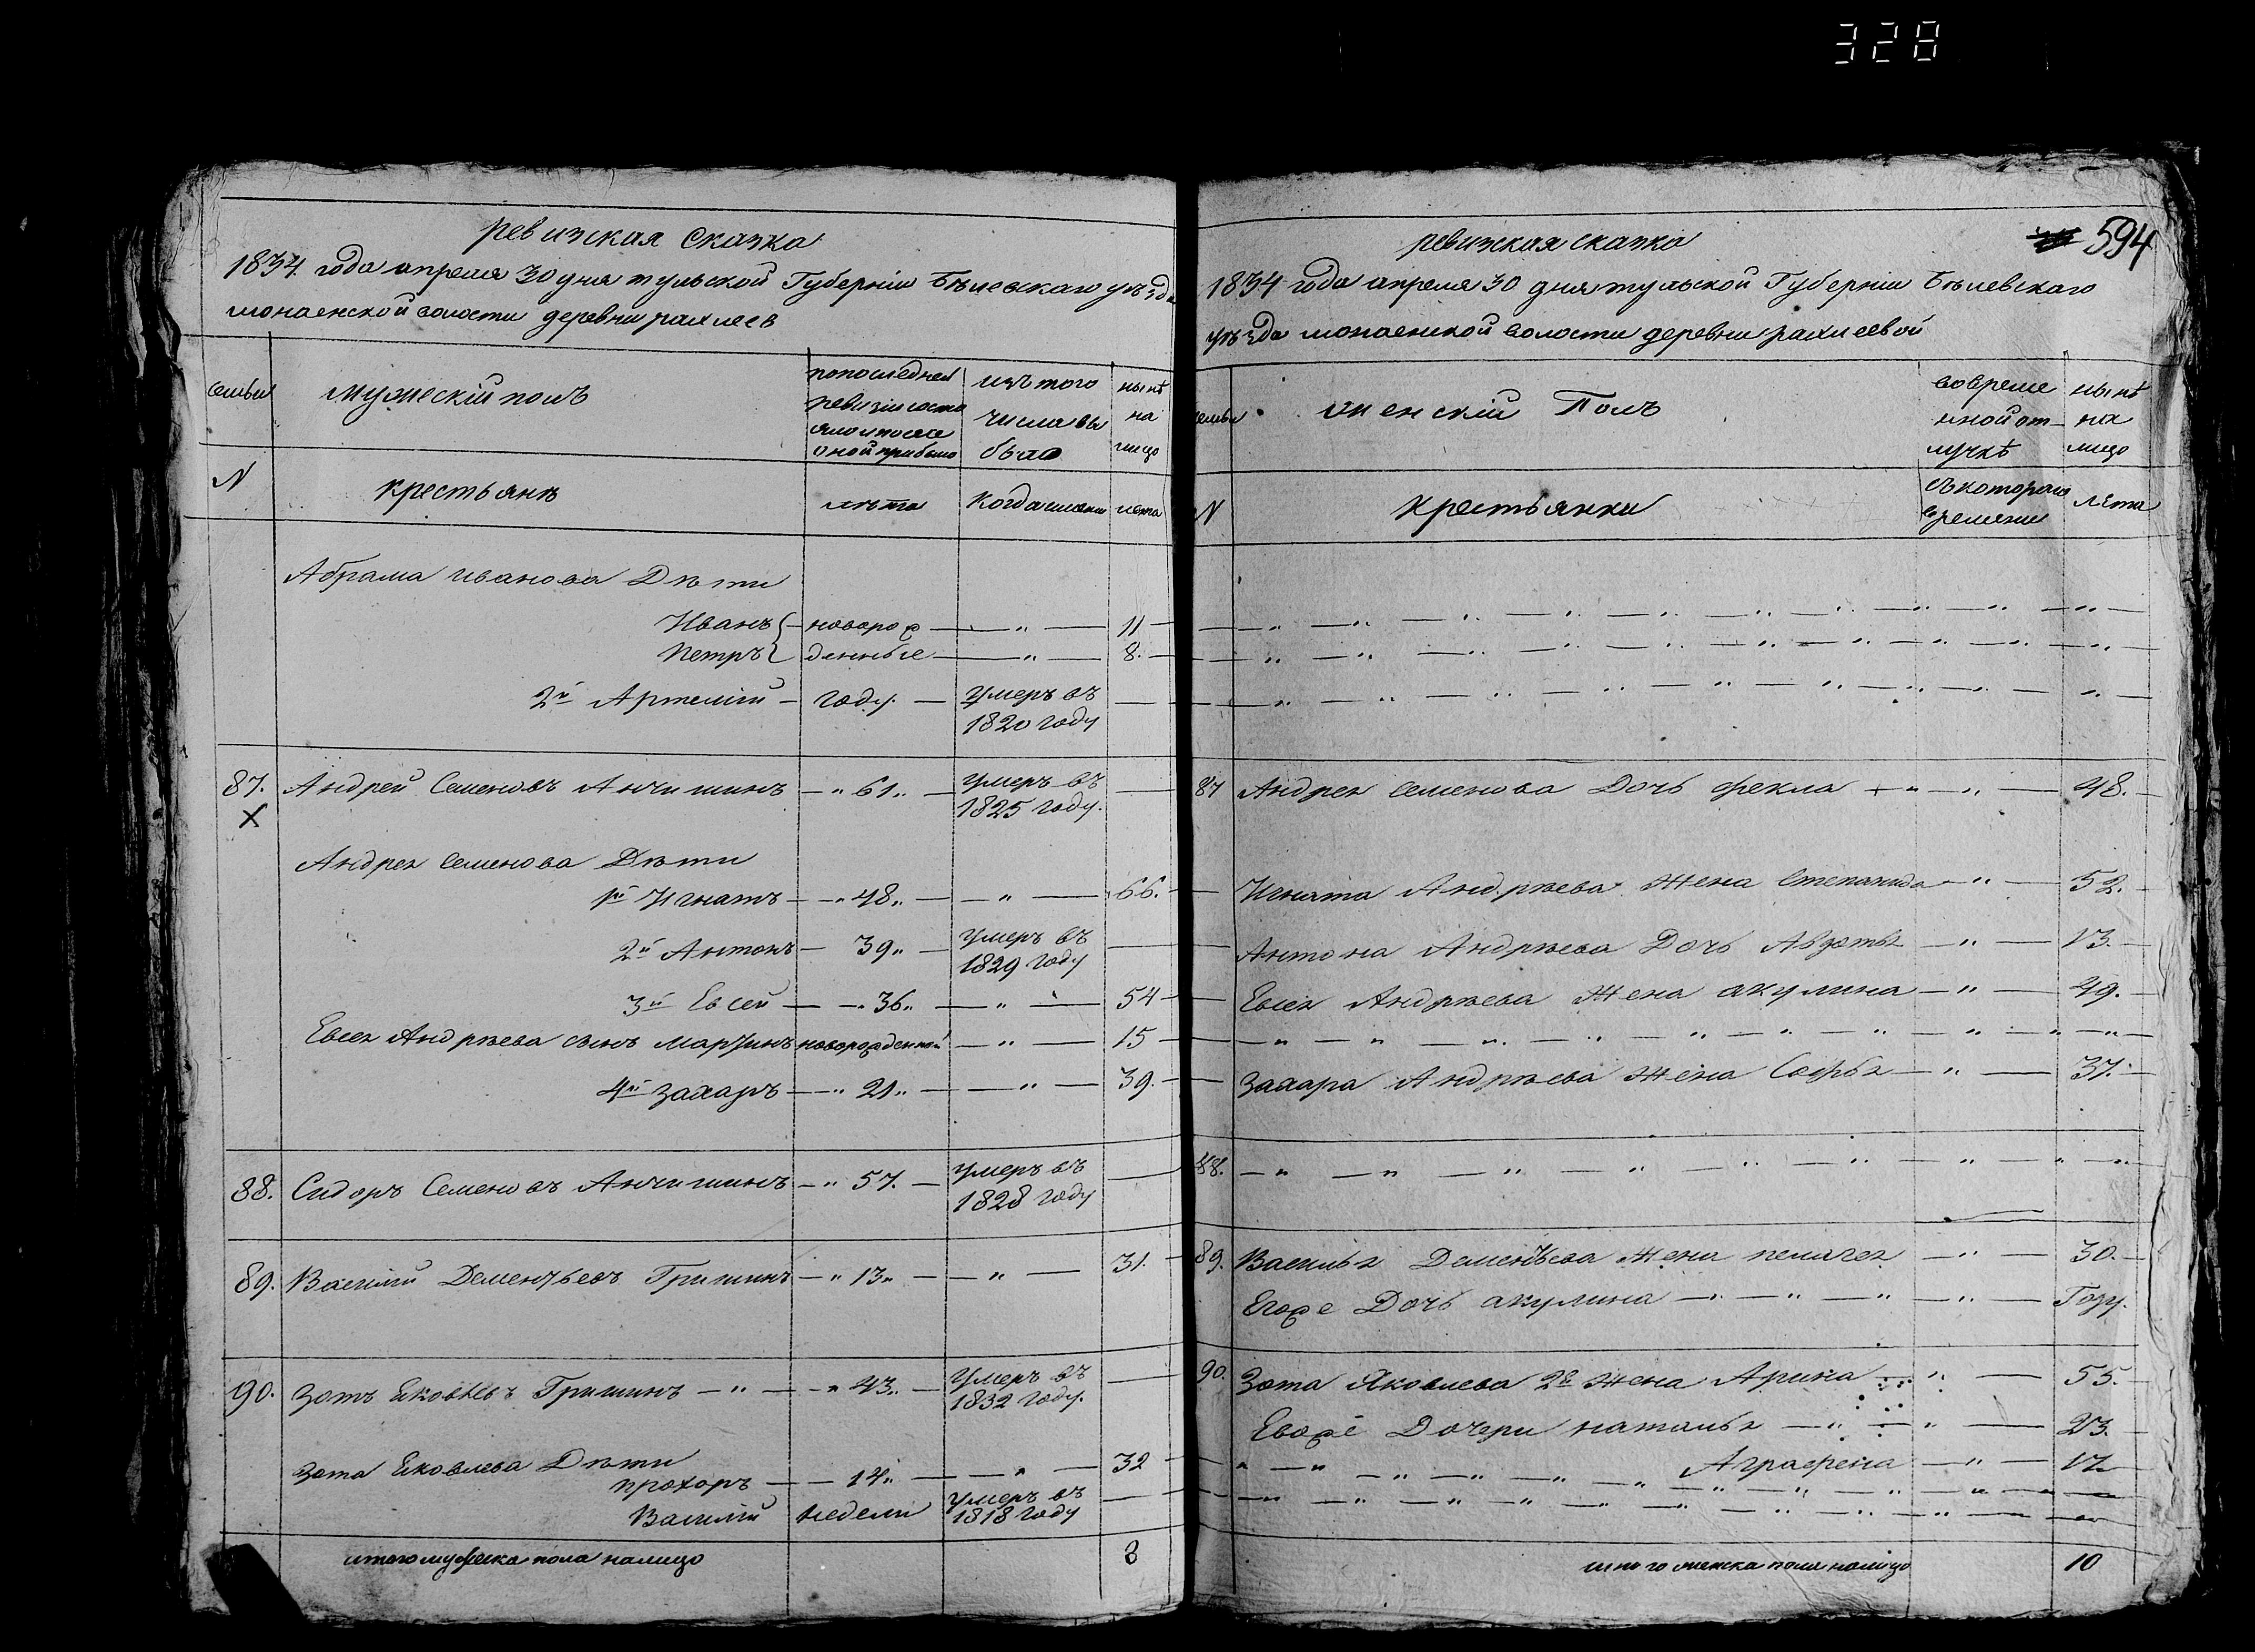 328
ревизская сказка
1834 года апреля 30 дня тульской Губерніи Бѣлевскаго уѣзда
монаенской волости деревни рахлеев
семьи
мужескій полъ
попоследней
ревизіи состо
яло и после
оной прибыло
изъ того
числа вы
было
нынѣ
на
лицо
N
крестьяне
лѣта
Когда имянно
лета
Абрама иванова Дѣти
Иванъ новорож — " — 11
Петръ денные — " — 8.
2й Артемій — году. — умеръ въ
1820 году
87. Андрей Семеновъ Анчишинъ — " 61 " — умеръ въ
1825 году.
X
Андрея Семенова Дѣти
1й Игнатъ — " 48 " — " — 66.
2й Антонъ — 39 " — умеръ въ
1829 году
3й Евсей — " 36 " — " — 54
Евсея Андрѣева сынъ мартинъ новорожденной — " — 15
4й захаръ — " 21 " — " — 39.
88. Сидоръ Семеновъ Анчишинъ — " 57. — умеръ въ
1828 году
89. Василій Дементьевъ Гришинъ — " 13 " — " — 31.
90. Зотъ Яковлевъ Гришинъ — " — " 43 " — умеръ въ
1832 году.
Зота Яковлева Дѣти
прохоръ — 14 " — " — 32
Василій недели умеръ въ
1818 году
итого мужеска пола налицо 8
594
ревизская сказка
1834 года апреля 30 дня тульской Губерніи Бѣлевскаго
уѣзда монаенской волости деревни рахлеевой
семьи
женскій Полъ
вовреме
нной от-
лучкѣ
нынѣ
на
лицо
N
крестьянки
съ котораго
времени
лѣта
87 Андрея Семенова Дочь фекла — " — " — 48.
Игната Андрѣева Жена Степанида — " — 52.
Антона Андрѣева Дочь Авдотья — " — 13.
Евсея Андрѣева Жена акулина — " — 49.
Захара Андрѣева Жена Софья — " — 37.
88. — " — " — " — " — " — " — " — " — " —
89. Василья Дементьева Жена пелагея — " — 30.
Егоже Дочь акулина — " — " — " — " — Году.
90. Зота Яковлева 2я Жена Арина — " — 55.
Евоже Дочери наталья — " — " — 23.
Аграфена — " — 17
итого женска пола налицо 10